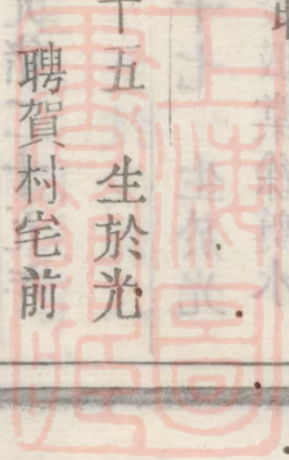 十五　生於光
聘賀村宅前